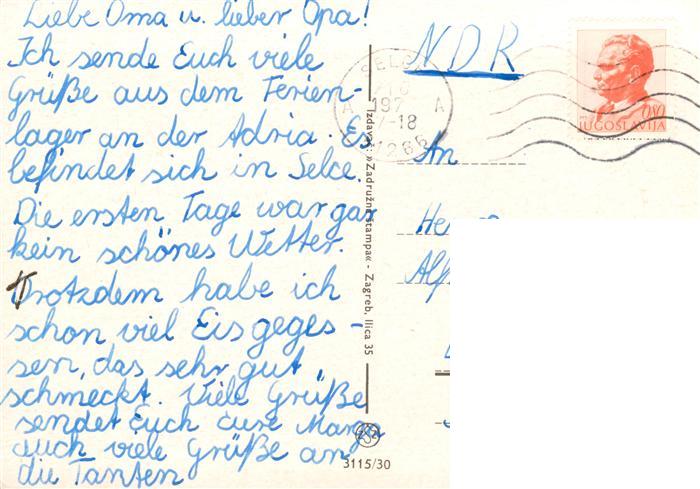 Liebe Oma u. lieber Opa!
Ich sende Euch viele
Grüße aus dem Ferien-
lager an der Adria. Es
befindet sich in Selce.
Die ersten Tage war gar
kein schönes Wetter.
Trotzdem habe ich
schon viel Eis geges-
sen, das sehr gut
schmeckt. Viele Grüße
sendet Euch Eure
auch viele Grüße an
die Tanten
Izdavač: »Zadružna štampa« - Zagreb, Ilica 35
3115/30
NDR
SELCE
197
A A
-18
JUGOSLAVIJA
An